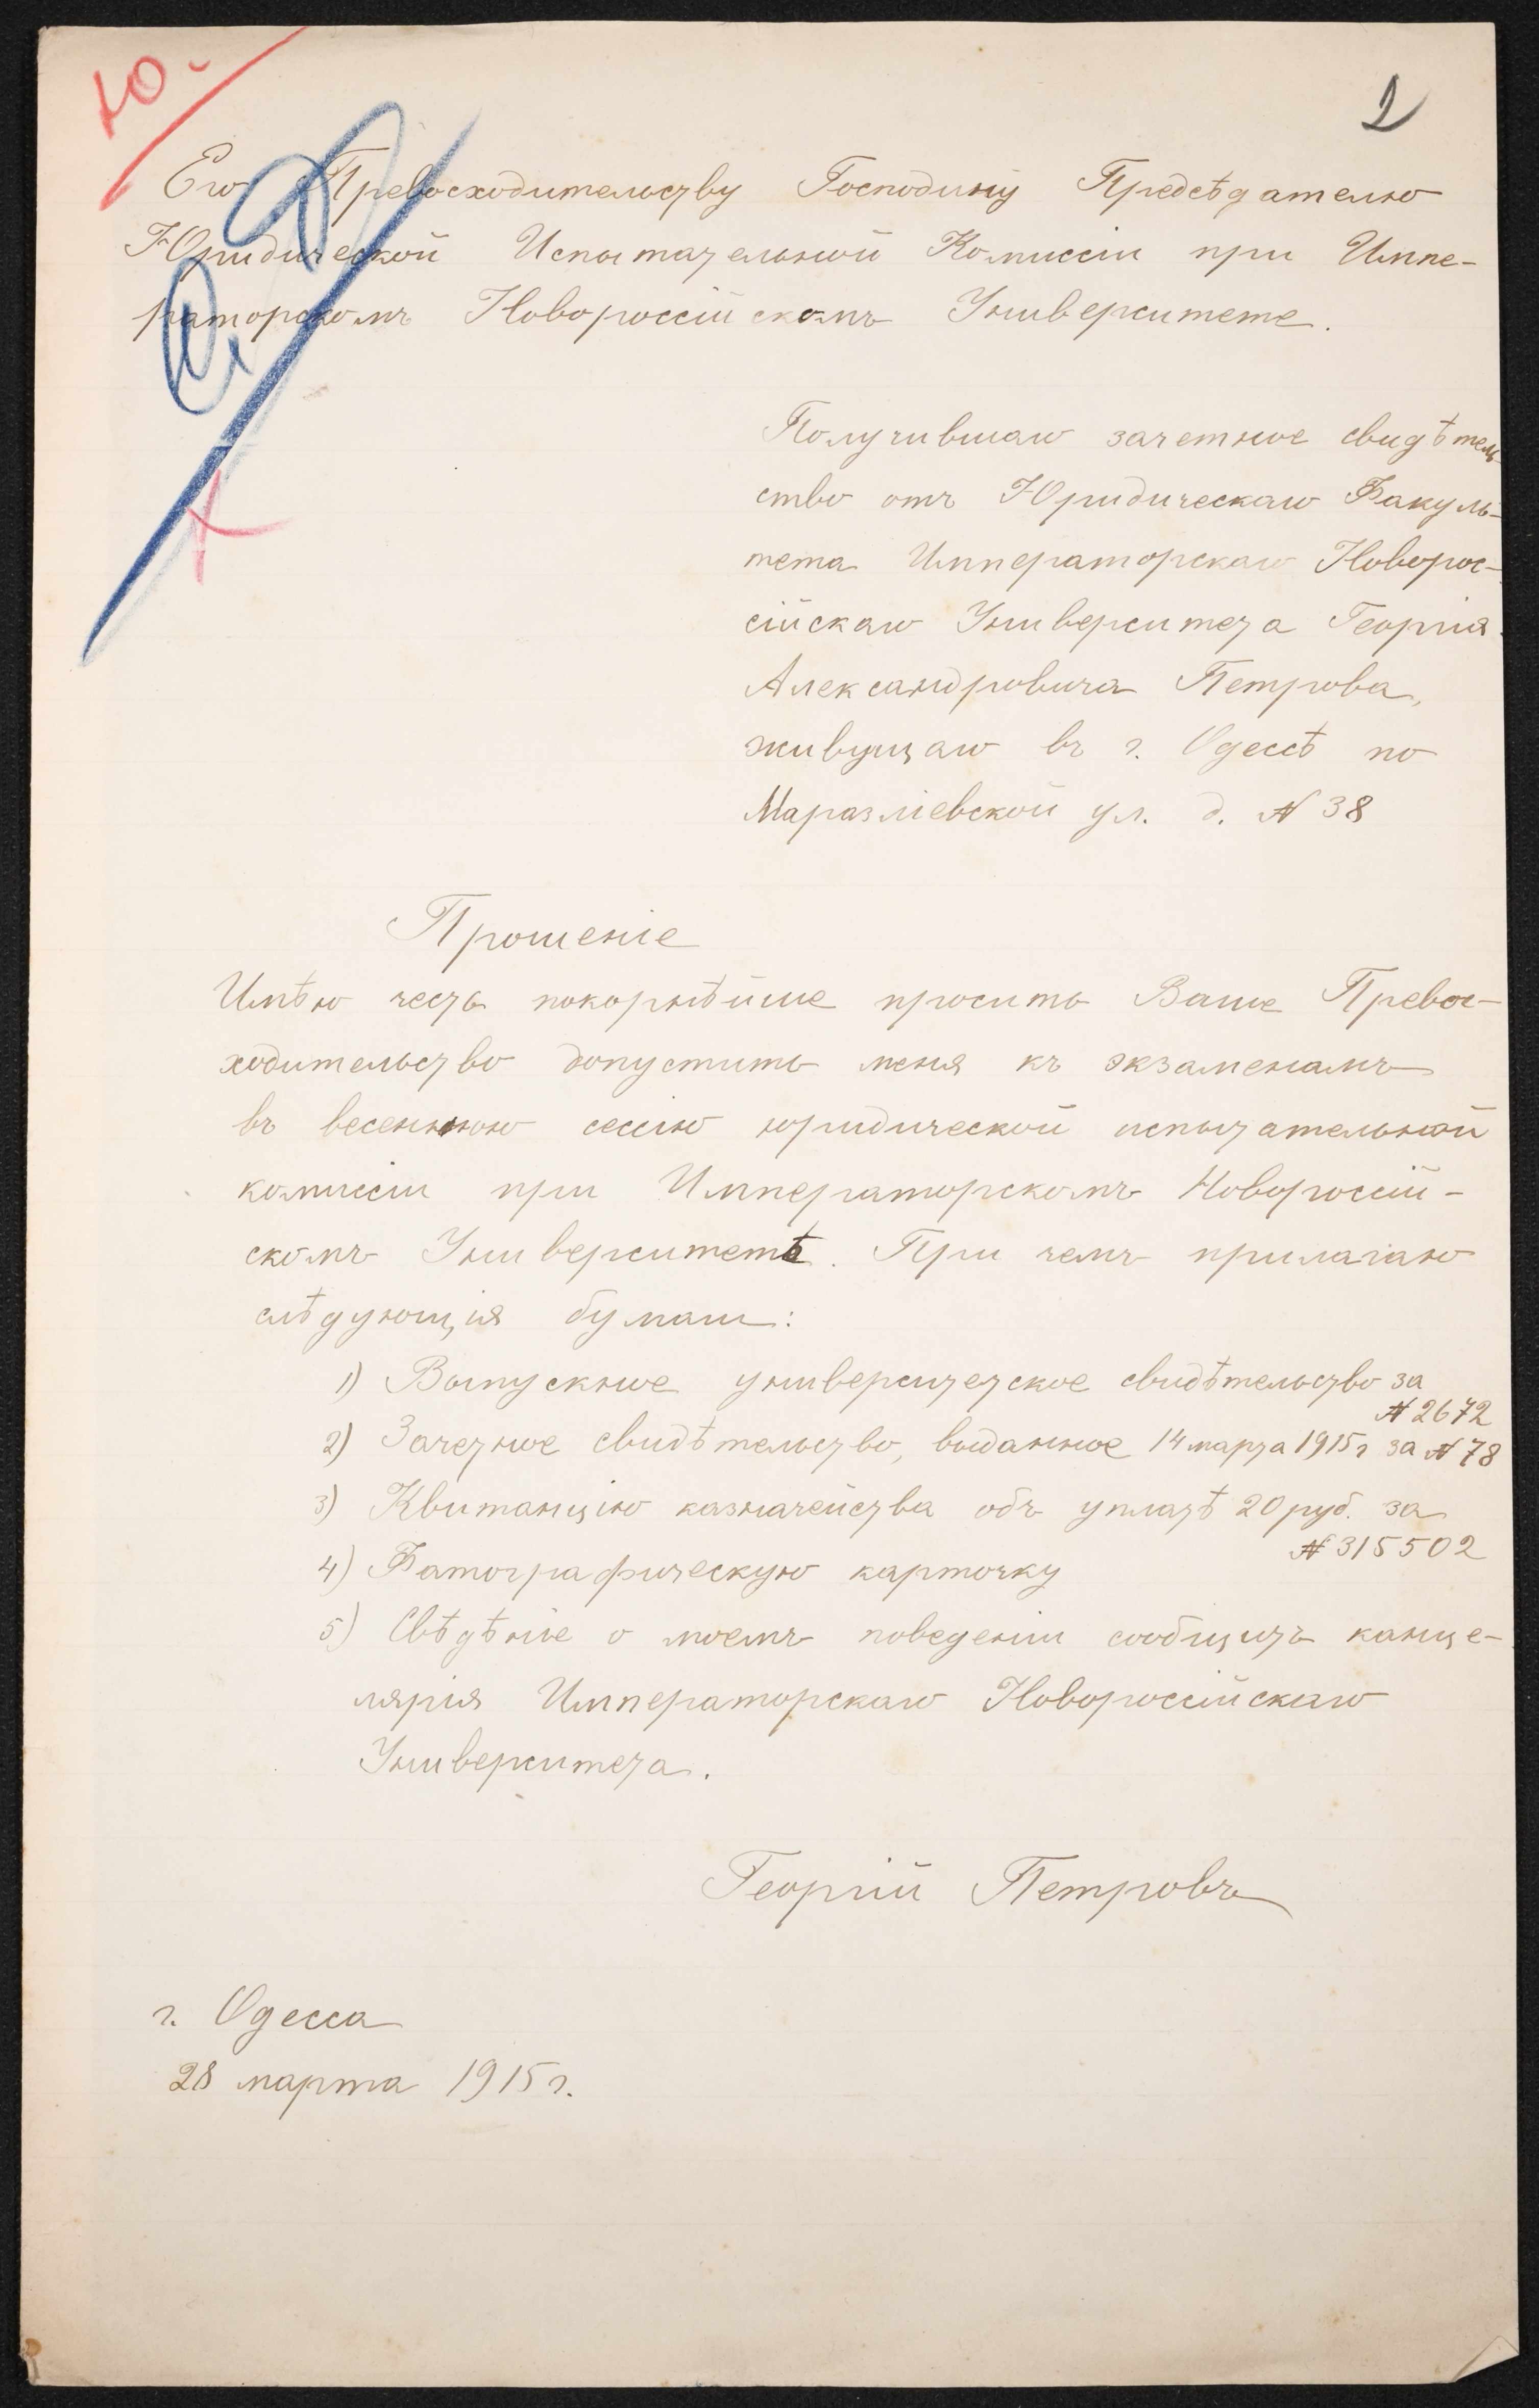 Ю.
2
Его Превосходительству Господину Предсѣдателю
Юридической Испытательной Комиссіи при Импе-
раторскомъ Новороссійскомъ Университете.
Получившаго зачетное свидѣтель-
ство отъ Юридическаго Факуль-
тета Императорскаго Новорос-
сійскаго Университета Георгія
Александровича Петрова,
живущаго въ г. Одессѣ по
Маразліевской ул. д. № 38
Прошеніе
Имѣю честь покорнѣйше просить Ваше Превос-
ходительство допустить меня къ экзаменамъ
въ весеннюю сессію юридической испытательной
комиссіи при Императорскомъ Новороссій-
скомъ Университетѣ. При чемъ прилагаю
слѣдующія бумаги:
1) Выпускное университетское свидѣтельство за
№ 2672
2) Зачетное свидѣтельство, выданное 14 марта 1915 г за № 78
3) Квитанцію казначейства объ уплатѣ 20 руб. за
№ 315502
4) Фатографическую карточку
5) Свѣдѣніе о моемъ поведеніи сообщитъ канце-
лярія Императорскаго Новороссійскаго
Университета.
Георгій Петровъ
г. Одесса
28 марта 1915 г.